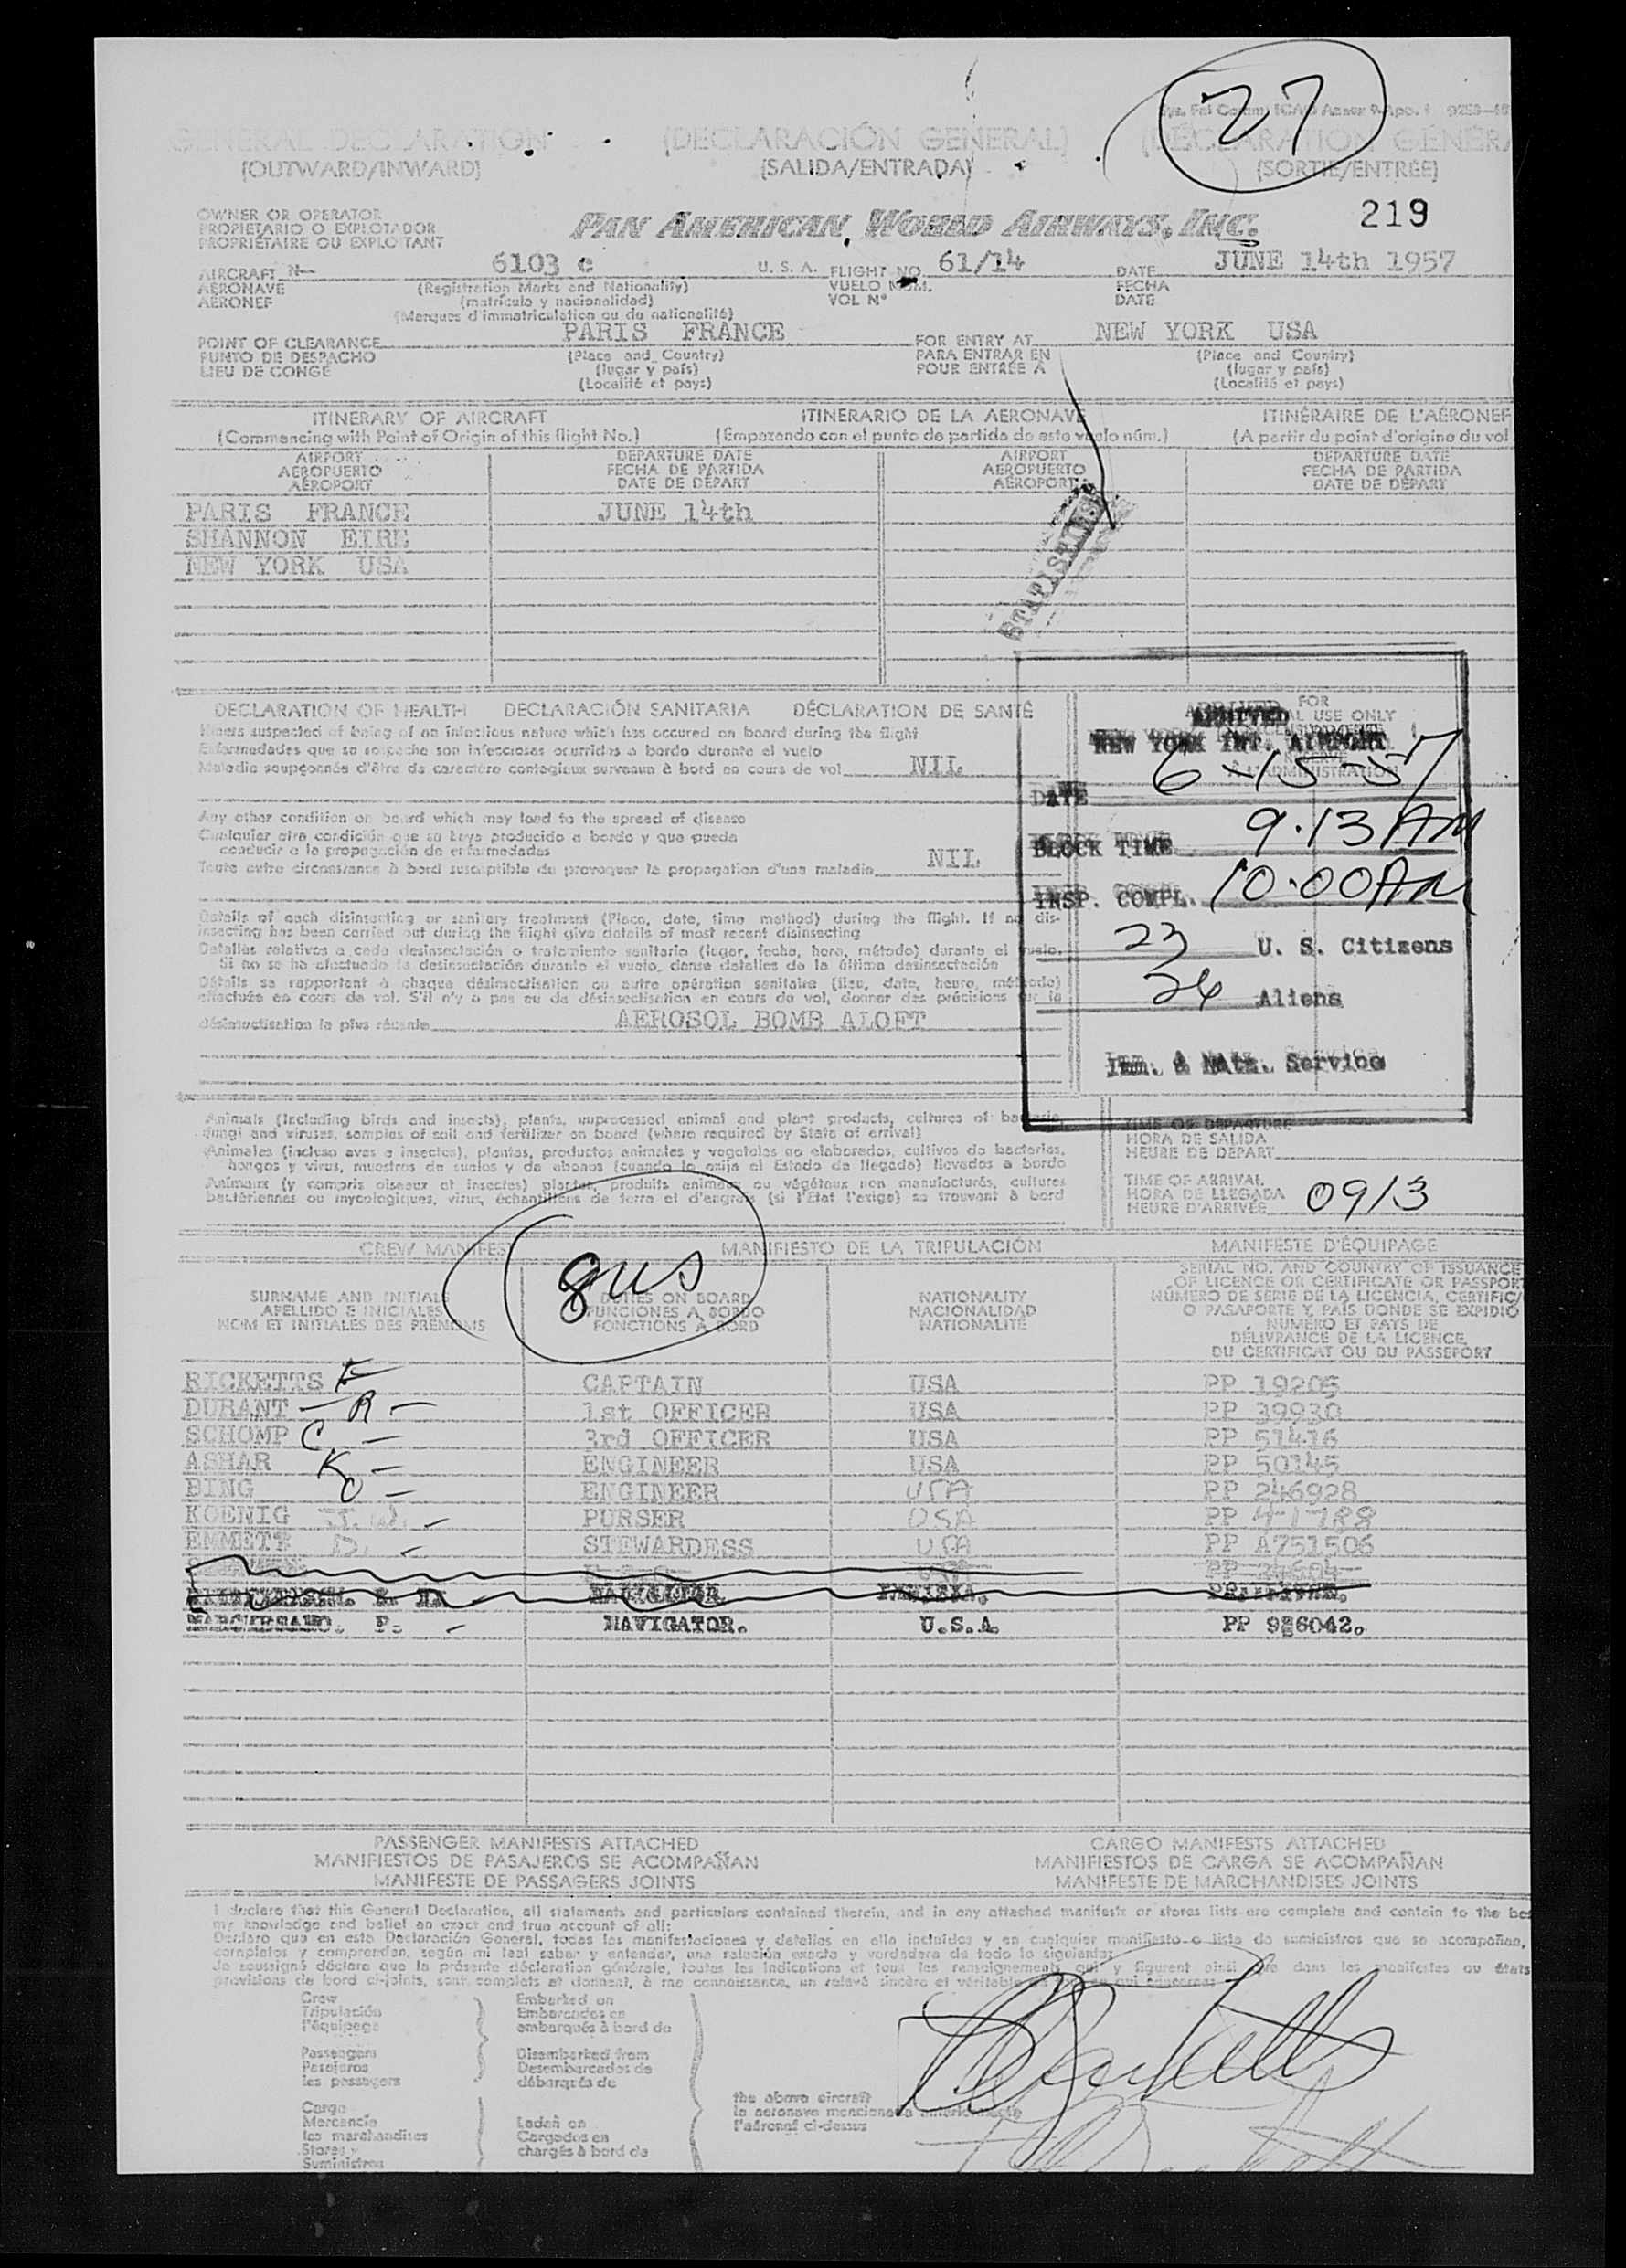 27
GENERAL DECLARATION (DECLARACIÓN GENERAL) (DÉCLARATION GÉNÉRA
(OUTWARD/INWARD) (SALIDA/ENTRADA) (SORTIE/ENTRÉE)
OWNER OR OPERATOR
PROPIETARIO O EXPLOTADOR
PROPRIÉTAIRE OU EXPLOITANT
PAN AMERICAN WORLD AIRWAYS, INC. 219
AIRCRAFT N 6103 c U. S. A. FLIGHT NO. 61/14 DATE JUNE 14th 1957
AERONAVE (Registration Marks and Nationality) VUELO NÚM. FECHA
AÉRONEF (matrícula y nacionalidad) VOL Nº DATE
(Marques d'immatriculation ou de nationalité)
POINT OF CLEARANCE PARIS FRANCE FOR ENTRY AT NEW YORK USA
PUNTO DE DESPACHO (Place and Country) PARA ENTRAR EN (Place and Country)
LIEU DE CONGÉ (lugar y país) POUR ENTRÉE A (lugar y país)
(Localité et pays) (Localité et pays)
ITINERARY OF AIRCRAFT ITINERARIO DE LA AERONAVE ITINÉRAIRE DE L'AÉRONEF
(Commencing with Point of Origin of this flight No.) (Empezando con el punto de partida de este vuelo núm.) (A partir du point d'origine du vol
AIRPORT DEPARTURE DATE AIRPORT DEPARTURE DATE
AEROPUERTO FECHA DE PARTIDA AEROPUERTO FECHA DE PARTIDA
AÉROPORT DATE DE DÉPART AÉROPORT DATE DE DÉPART
PARIS FRANCE JUNE 14th
SHANNON EIRE
NEW YORK USA
DECLARATION OF HEALTH DECLARACIÓN SANITARIA DÉCLARATION DE SANTÉ
Illness suspected of being of an infectious nature which has occured on board during the flight
Enfermedades que se sospeche son infecciosas ocurridas a bordo durante el vuelo
Maladie soupçonnée d'être de caractère contagieux survenue à bord en cours de vol NIL
Any other condition on board which may lead to the spread of disease
Cualquier otra condición que se haya producido a bordo y que pueda
conducir a la propagación de enfermedades
Toute autre circonstance à bord susceptible de provoquer la propagation d'une maladie NIL
Details of each disinsecting or sanitary treatment (Place, date, time method) during the flight. If no dis-
insecting has been carried out during the flight give details of most recent disinsecting
Detalles relativos a cada desinsectación o tratamiento sanitario (lugar, fecha, hora, método) durante el vuelo.
Si no se ha efectuado la desinsectación durante el vuelo, dense detalles de la última desinsectación
Détails se rapportant à chaque désinsectisation ou autre opération sanitaire (lieu, date, heure, méthode)
effectuée en cours de vol. S'il n'y a pas eu de désinsectisation en cours de vol, donner des précisions sur la
désinsectisation la plus récente AEROSOL BOMB ALOFT
ARRIVED
NEW YORK INT. AIRPORT
DATE 6-15-57
BLOCK TIME 9.13 AM
INSP. COMPL. 10.00 AM
23 U. S. Citizens
26 Aliens
Imm. & Natz. Service
Animals (Including birds and insects), plants, unprocessed animal and plant products, cultures of bacteria
fungi and viruses, samples of soil and fertilizer on board (where required by State of arrival)
Animales (incluso aves e insectos), plantas, productos animales y vegetales no elaborados, cultivos de bacterias,
hongos y virus, muestras de suelos y de abonos (cuando lo exija el Estado de llegada) llevados a bordo
Animaux (y compris oiseaux et insectes) plantes, produits animaux ou végétaux non manufacturés, cultures
bactériennes ou mycologiques, virus, échantillons de terre et d'engrais (si l'Etat l'exige) se trouvant à bord
TIME OF DEPARTURE
HORA DE SALIDA
HEURE DE DÉPART
TIME OF ARRIVAL
HORA DE LLEGADA
HEURE D'ARRIVÉE 0913
CREW MANIFES MANIFIESTO DE LA TRIPULACIÓN MANIFESTE D'ÉQUIPAGE
8 US
SURNAME AND INITIALS DUTIES ON BOARD NATIONALITY SERIAL NO. AND COUNTRY OF ISSUANCE
APELLIDO E INICIALES FUNCIONES A BORDO NACIONALIDAD OF LICENCE OR CERTIFICATE OR PASSPORT
NOM ET INITIALES DES PRÉNOMS FONCTIONS A BORD NATIONALITÉ NÚMERO DE SERIE DE LA LICENCIA, CERTIFIC
O PASAPORTE Y PAÍS DONDE SE EXPIDIÓ
NUMÉRO ET PAYS DE
DÉLIVRANCE DE LA LICENCE,
DU CERTIFICAT OU DU PASSEPORT
RICKETTS F CAPTAIN USA PP 19205
DURANT — R — 1st OFFICER USA PP 39930
SCHOMP C — 3rd OFFICER USA PP 51416
ASHAR K — ENGINEER USA PP 50145
BING O — ENGINEER USA PP 246928
KOENIG J. W. — PURSER USA PP 41788
EMMETT D. — STEWARDESS USA PP A751506
P. — NAVIGATOR. U.S.A. PP 986042.
PASSENGER MANIFESTS ATTACHED CARGO MANIFESTS ATTACHED
MANIFIESTOS DE PASAJEROS SE ACOMPAÑAN MANIFIESTOS DE CARGA SE ACOMPAÑAN
MANIFESTE DE PASSAGERS JOINTS MANIFESTE DE MARCHANDISES JOINTS
I declare that this General Declaration, all statements and particulars contained therein, and in any attached manifests or stores lists are complete and contain to the bes
my knowledge and belief an exact and true account of all:
Declaro que en esta Declaración General, todas las manifestaciones y detalles en ella incluidos y en cualquier manifiesto o lista de suministros que se acompañan,
completos y comprenden, según mi leal saber y entender, una relación exacta y verdadera de todo lo siguiente:
Je soussigné déclare que la présente déclaration générale, toutes les indications et tous les renseignements qui y figurent ainsi que dans les manifestes ou états
provisions de bord ci-joints, sont complets et donnent, à ma connaissance, un relevé sincère et véritable
Crew Embarked on
Tripulación Embarcados en
l'équipage embarqués à bord de
Passengers Disembarked from
Pasajeros Desembarcados de
les passagers débarqués de
the above aircraft
la aeronave mencionada anteriormente
l'aéronef ci-dessus
Cargo
Mercancía Laden on
les marchandises Cargados en
Stores chargés à bord de
Suministros